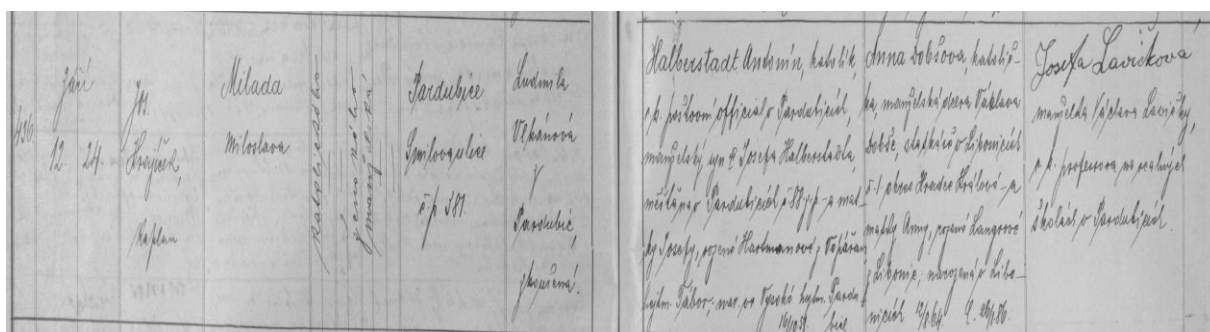 436
Září
12. 24.
Jos.
Kaplan
Milada
Miloslava
katolického
ženského
manželská
Pardubice
Smilova ulice
č. p. 581.
Ludmila
z
Pardubic,
zkoušená.
Halberstadt Antonín, katolík,
c. k. poštovní official v Pardubicích,
manželský syn Josefa Halberstadta,
měšťana v Pardubicích č 88 a mat-
ky Josefy, rozené Hartmanové z
hejtm. Tábor; nar. ve Vysoké hejtm. Pardu-
bice
Anna Dobšova, katolič-
ka, manželská dcera Václava
Dobše, v Libonicích
č. 1 okres Hradec Králové a
matky Anny, rozené Langrové
z Libonic, narozená v Libo-
nicích 12/8 64.
Josefa Lavičková
manželka Václava Lavičky,
c. k. professora na reálných
školách v Pardubicích.